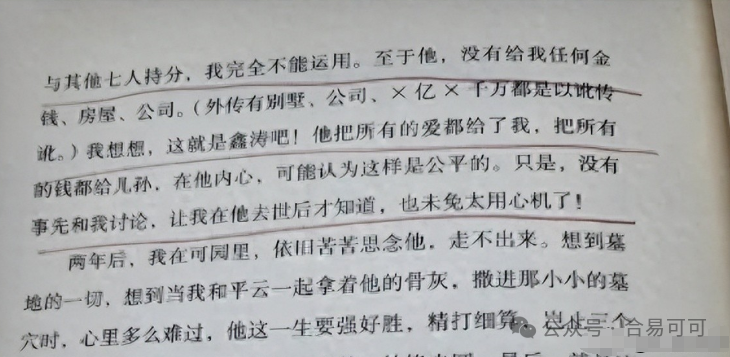 与其他七人持分，我完全不能运用。至于他，没有给我任何金
钱、房屋、公司。（外传有别墅、公司、×亿×千万都是以讹传
讹。）我想想，这就是鑫涛吧！他把所有的爱都给了我，把所有
的钱都给儿孙，在他内心，可能认为这样是公平的。只是，没有
事先和我讨论，让我在他去世后才知道，也未免太用心机了！
两年后，我在可园里，依旧苦苦思念他，走不出来。想到墓
地的一切，想到当我和平云一起拿着他的骨灰，撒进那小小的墓
穴时，心里多么难过，他这一生要强好胜，精打细算，岂止三个
公众号·合易可可